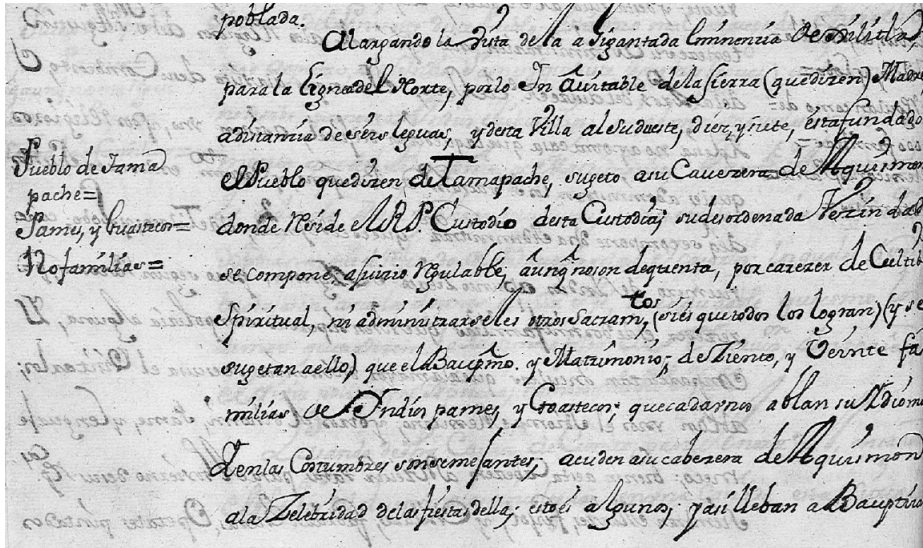 poblada.
Alargando la vista de la a Gigantada Eminencia de Xilitla
para la Lignea del Norte, por lo Inavitable dela sierra (que dizen) Madre
a distancia de seis leguas, y desta Villa al Sudueste, diez, y siete, esta fundado
Pueblo de Tama
pache=
Pames, y huastecos=
120 familias=
el Pueblo que dizen de Tamapache, sugeto a su Cavezera de Aquismon
donde Reside N.R.P. Custodio desta Custodia; su desordenada Vezindad
se compone, a juicio Regulable, aunq no son de quenta, por carezer de Cultibo
Spiritual, ni administrarseles otros Sacram.tos (si es que todos los logran) (y se
sugetan a ello) que el Baup.mo y Matrimonio; de Ziento, y Veinte fa
milias de Indios pames, y Goastecos; que cada uno ablan su Ydioma
en las Costumbres son semejantes; acuden a su cabezera de Aquismon
a la Zelebridad de las fiesta della; esto es algunos; y asi lleban a Bauptizar